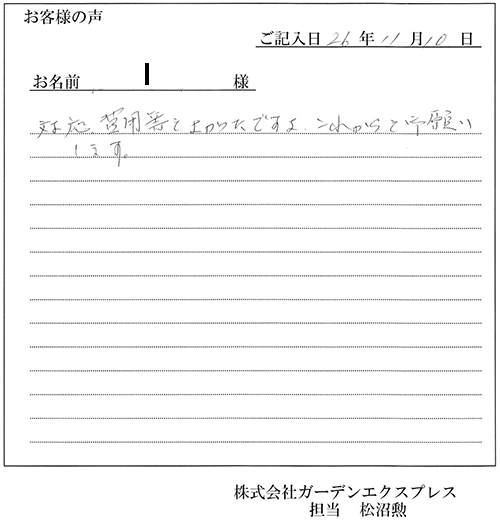 お客様の声
ご記入日 26 年 11 月 10 日
お名前 様
対応、費用等とよかったですよ。これからも御願い
します。
株式会社ガーデンエクスプレス
担当 松沼勲